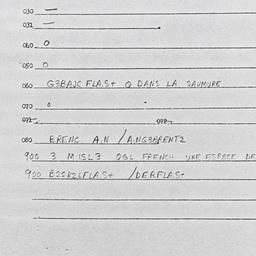 030 —
031 —
040 O
050 O
060 G3BAJC FLAS+ Q DANS LA SAUMURE
070 o
071 072
080 BRENC A.N / A.NG3BRENT2
900 3 MISL3 QGL FRENCH UNE ESPECE DE
900 B22K2LFLAS+ /DERFLAS+